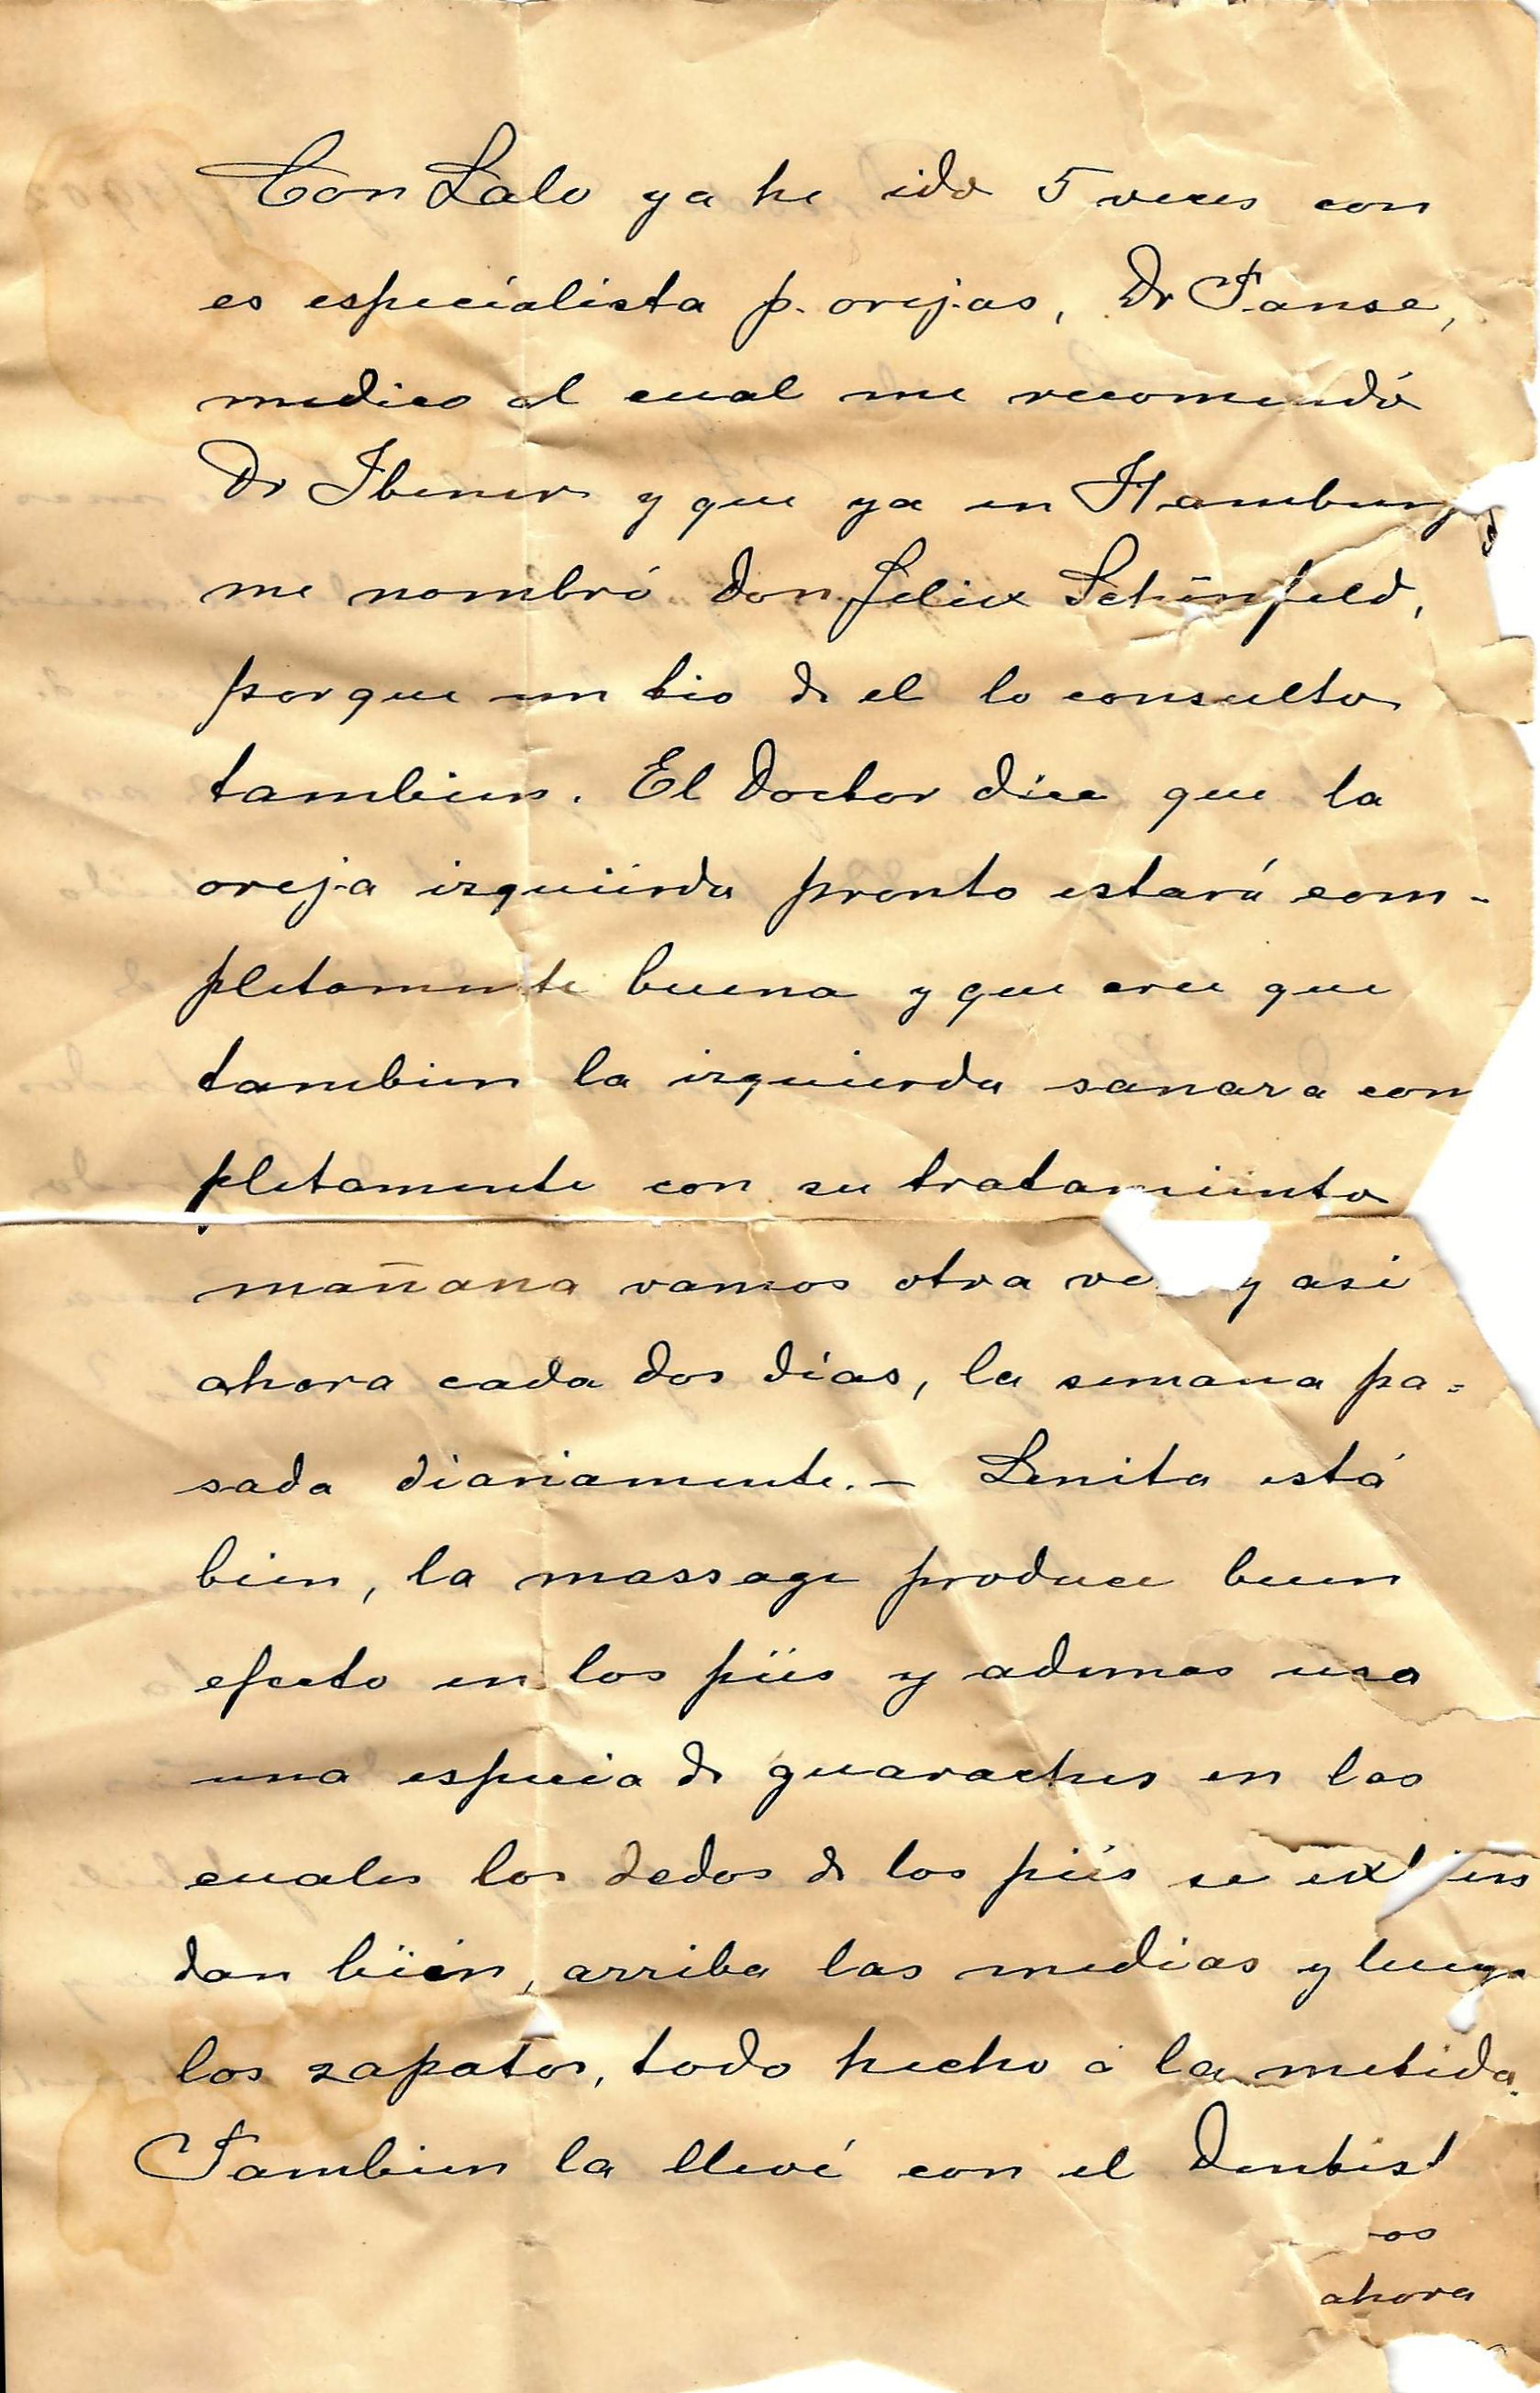 Con Lalo ya he ido 5 veces con
es especialista p. orejas, Dr Panse,
medico el cual me recomendó
Dr Ibener y que ya en Hamburg
me nombró Don Felix Schönfeld,
porque un tio de el lo consulto
tambien. El Doctor dice que la
oreja izquierda pronto estará com-
pletamente buena y que cree que
tambien la izquierda sanara com
pletamente con su tratamiento
mañana vamos otra ve y asi
ahora cada dos días, la semana pa=
sada diariamente.- Lenita está
bien, la massage produce buen
efecto en los piés y ademas usa
una especia de guaraches en las
cuales los dedos de los piés se ext ien
dan bien, arriba las medias y luego
los zapatos, todo hecho á la metida.
Tambien la llevé con el Dentist
ahora